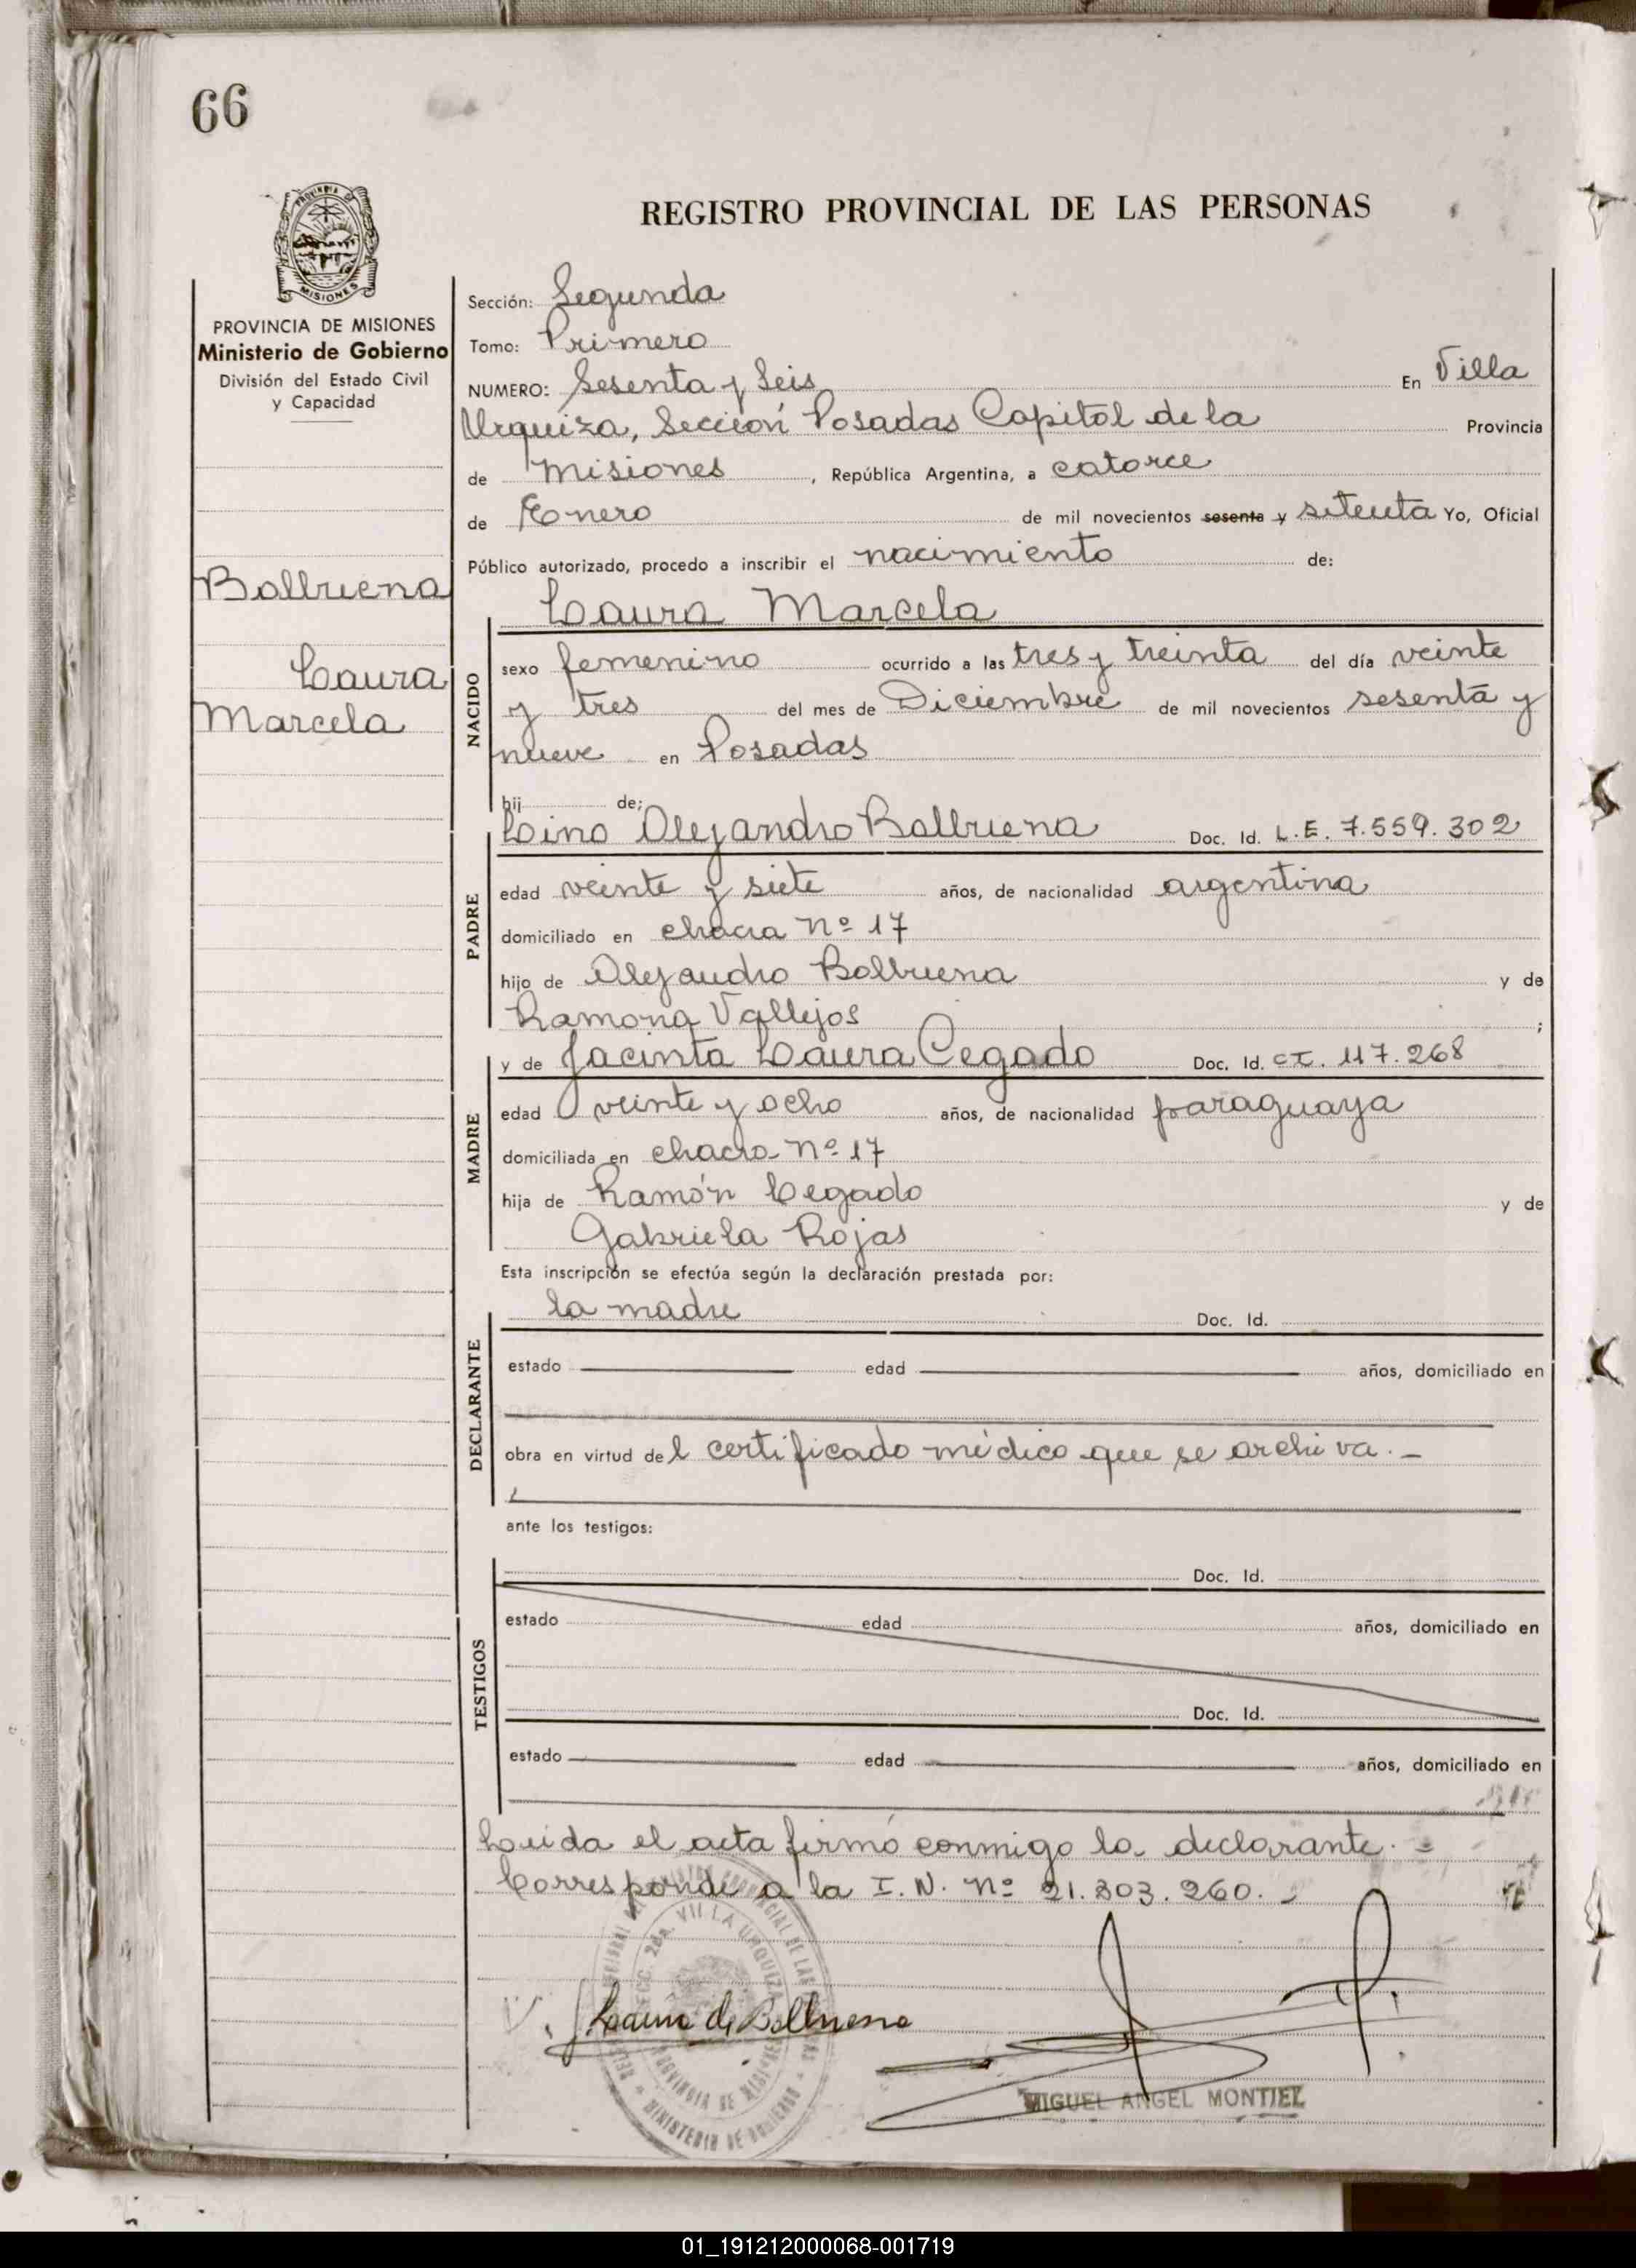 66
PROVINCIA DE
MISIONES
REGISTRO PROVINCIAL DE LAS PERSONAS
PROVINCIA DE MISIONES
Ministerio de Gobierno
División del Estado Civil
y Capacidad
Sección: Segunda
Tomo: Primero
NUMERO: Sesenta y Seis En Villa
Urquiza, Sección Posadas Capital de la Provincia
de Misiones, República Argentina, a catorce
de Enero de mil novecientos sesenta y setenta Yo, Oficial
Público autorizado, procedo a inscribir el nacimiento de:
Balbuena
Laura
Marcela
Laura Marcela
NACIDO
sexo femenino ocurrido a las tres y treinta del día veinte
y tres del mes de Diciembre de mil novecientos sesenta y
nueve en Posadas
hij de:
Lino Alejandro Balbuena Doc. Id. L.E. 7.559.302
PADRE
edad veinte y siete años, de nacionalidad argentina
domiciliado en chacra Nº 17
hijo de Alejandro Balbuena y de
Ramona Vallejos ;
y de Jacinta Laura Cegado Doc. Id. CI. 117.268
MADRE
edad veinte y ocho años, de nacionalidad paraguaya
domiciliada en chacra Nº 17
hija de Ramón Cegado y de
Gabriela Rojas
Esta inscripción se efectúa según la declaración prestada por:
la madre Doc. Id.
DECLARANTE
estado edad años, domiciliado en
obra en virtud del certificado médico que se archiva.-
ante los testigos:
Doc. Id.
TESTIGOS
estado edad años, domiciliado en
Doc. Id.
estado edad años, domiciliado en
Leida el acta firmó conmigo la declarante.=
Corresponde a la I.N. Nº 21.303.260.-
SECC. 2da. VILLA URQUIZA
PROVINCIA DE MISIONES
MINISTERIO DE GOBIERNO
J. Laura de Balbuena
MIGUEL ANGEL MONTIEL
01_191212000068-001719